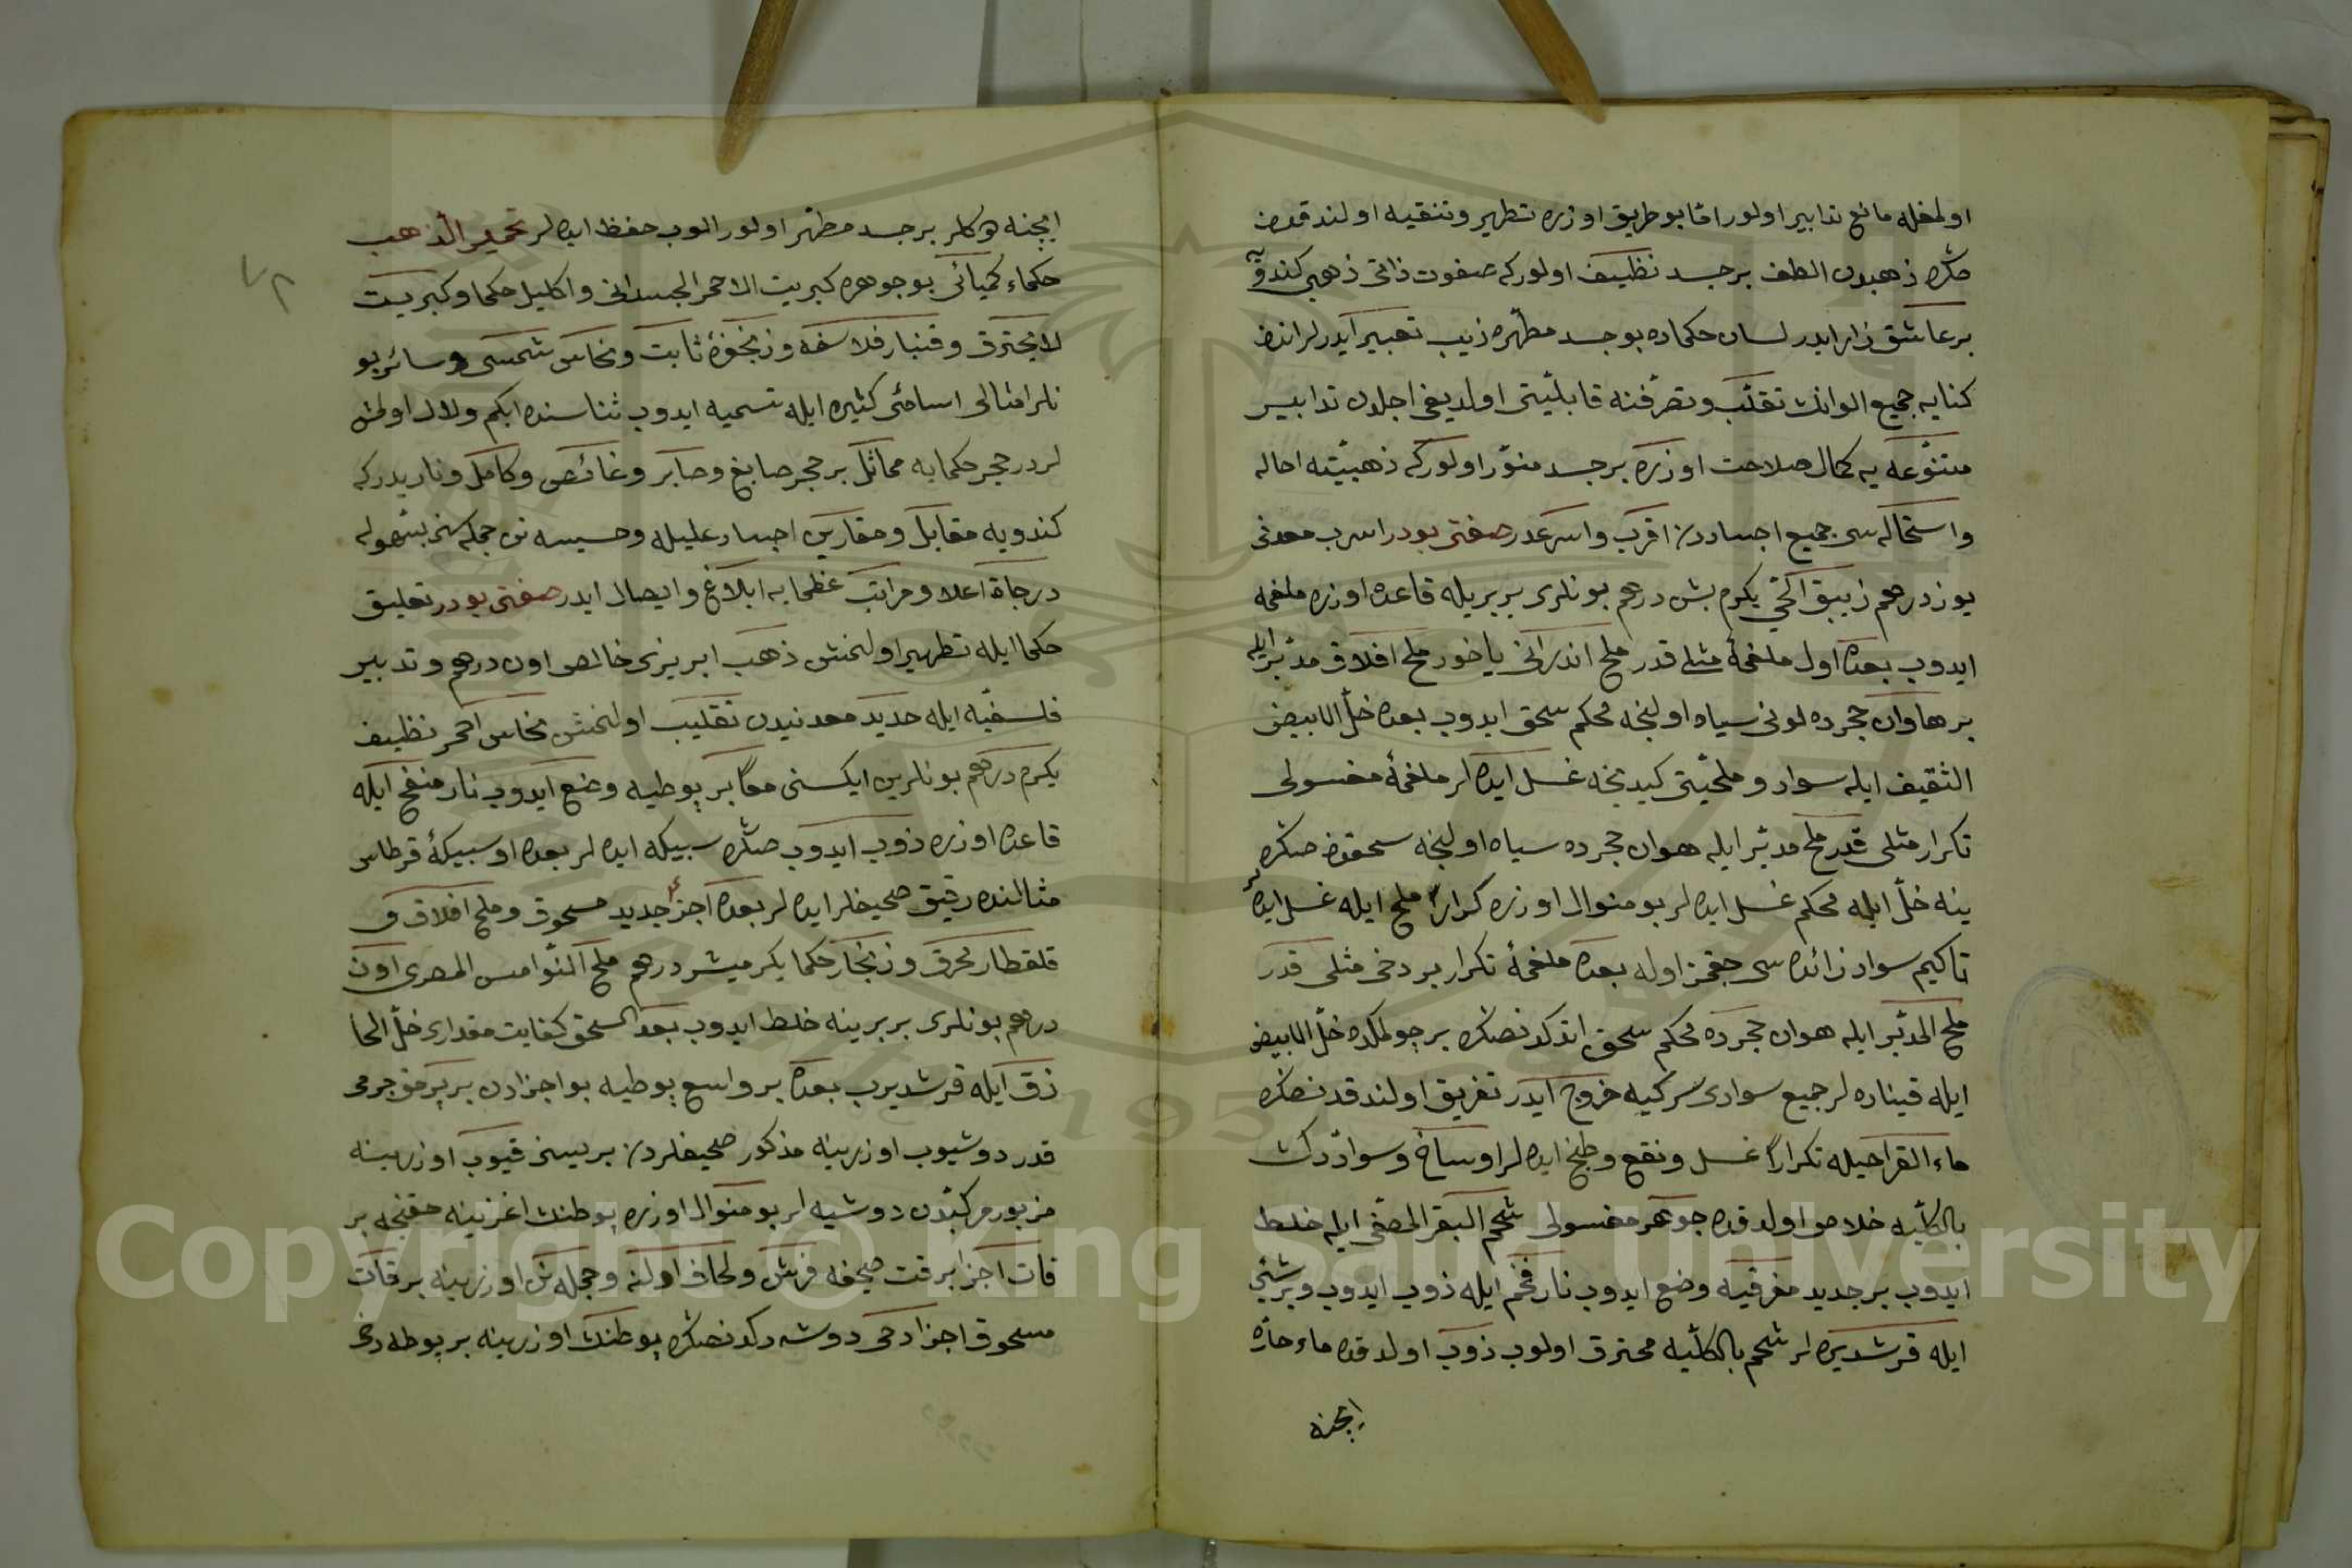 اولمغله مانع تدابير اولور اما بو طريق اوزره تطهير وتنقيه اولندقدن
صكره ذهبدن الطف بر جسد نظيف اولوركه صفوت ذاتى ذهبى كندويه
بر عاشق زار ايدر لسان حكماده بو جسد مطهره زيب تعبير ايدرلر اندن
كنايه جميع الوانك تقلب وتصرفنه قابليتى اولديغى اجلدن تدابير
متنوعه يه كمال صلاحت اوزره بر جسد منور اولوركه ذهبيته احاله
واستحاله سى جميع اجساددن اقرب واسرعدر صفتى بودر اسرب معدنى
يوز درهم زيبق الحى يكرمى بش درهم بونلرى بربريله قاعده اوزره ملغمه
ايدوب بعده اول ملغمهٔ مثلى قدر ملح اندرانى ياخود ملح افلاق مدبر ايله
بر هاوان حجرده لونى سياه اولنجه محكم سحق ايدوب بعده خل الابيض
الثقيف ايله سواد وملحيتى كيدنجه غسل ايده لر ملغمهٔ مغسولى
تكرار مثلى قدر ملح مدبر ايله هوان حجرده سياه اولنجه سحقدن صكره
ينه خل ايله محكم غسل ايده لر بو منوال اوزره كرارا ملح ايله غسل ايده لر
تاكيم سواد زائده سى چقمز اوله بعده ملغمهٔ تكرار بر دخى مثلى قدر
ملح المدبر ايله هوان حجرده محكم سحق اتدكدنصكره بر چولمكده خل الابيض
ايله قيناده لر جميع سوادى سركيه خروج ايدر تفريق اولندقدنصكره
ماء القراحيله تكرارا غسل ونقع وطبخ ايده لر اوساخ وسواددن
بالكليه خلاص اولدقده جوهر مغسولى شحم البقر المصفى ايله خلط
ايدوب بر جديد مغرفيه وضع ايدوب نار فحم ايله ذوب ايدوب وبر شيش
ايله قرشديره لر شحم بالكليه محترق اولوب ذوب اولدقده ماء حاره
ايچنه
ايچنه دوكلر بر جسد مطهر اولور الوب حفظ ايده لر تحمير الذهب
حكماء كميائى بو جوهره كبريت الاحمر الجسدانى واكليل حكما وكبريت
لا يحترق وقنبار فلاسفه وزنجفرهٔ ثابت ونحاس شمسى وسائر بو
نلر امثالى اسامئ كثيره ايله تسميه ايدوب ثناسنده ابكم ولال اولمش
لردر حجر حكمايه مماثل بر حجر صابغ وصابر وغائص وكامل ونار يدركه
كندويه مقابل ومقارن اجساد عليله وخسيسه نن جمله سنى بسهوله
درجات اعلا ومراتب عظمايه ابلاغ وايصال ايدر صفتى بودر تعليق
حكما ايله تطهير اولنمش ذهب ابريزى خالص اون درهم وتدبير
فلسفيه ايله حديد معدنيدن تقليب اولنمش نحاس احمر نظيف
يكرمى درهم بونلرين ايكسنى معا بر پوطيه وضع ايدوب نار منفخ ايله
قاعده اوزره ذوب ايدوب صكره سبيكه ايده لر بعده او سبيكهٔ قرطاس
مثالنده رقيق صحيفلر ايده لر بعده اجزاء جديد مسحوق وملح افلاق و
قلقطار محرق وزنجار حكما يكرميشر درهم ملح النوامس المصرى اون
درهم بونلرى بربرينه خلط ايدوب بعد السحق كفايت مقدارى خل الحا
ذق ايله قرشديرب بعده بر واسع پوطيه بو اجزادن بر پرمق جرمى
قدر دوشيوب اوزرينه مذكور صحيفلردن بريسنى قيوب اوزرينه
مزبور مركبدن دوشيه لر بو منوال اوزره پوطنك اغزينه چقنجه بر
قات اجزا بر قت صحيفه فرش ولحاف اولنه وجمله نن اوزرينه بر قات
مسحوق اجزا دخى دوشه دكدنصكره پوطنك اوزرينه بر پوطه دخى
Copyright © King Saud University
195